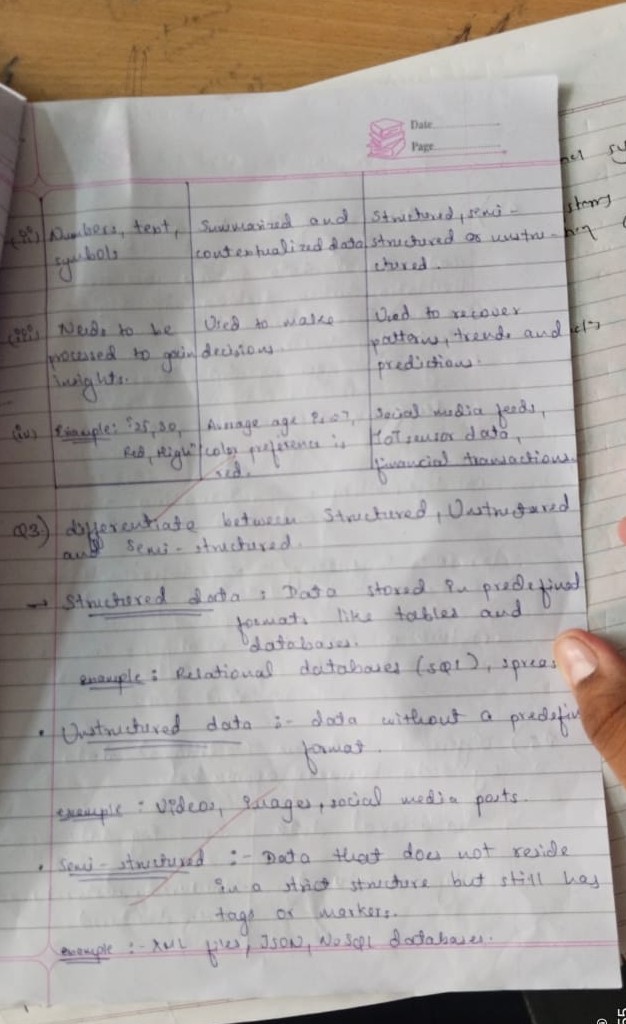 Date
Page
(ii) Numbers, text, symbols
Summarized and contextualized data
Structured, semi-structured or unstructured.
(iii) Needs to be processed to gain insights.
Used to make decisions.
Used to recover patterns, trends and predictions.
(iv) Example: "25, 30, Red, High"
Average age is 27, color preference is red.
Social media feeds, IoT sensor data, financial transactions.
Q3.) differentiate between Structured, Unstructured
and Semi-structured.
→ Structured data : Data stored in predefined
formats like tables and
databases.
example : Relational databases (SQL), spreas
• Unstructured data :- data without a predefin
format.
example : Videos, images, social media posts.
• Semi-structured :- Data that does not reside
in a strict structure but still has
tags or markers.
example :- XML files, JSON, NoSQL databases.